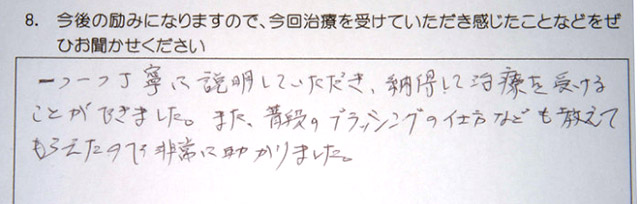 8. 今後の励みになりますので、今回治療を受けていただき感じたことなどをぜ
ひお聞かせください
一つ一つ丁寧に説明していただき、納得して治療を受ける
ことができました。また、普段のブラッシングの仕方なども教えて
もらえたので非常に助かりました。